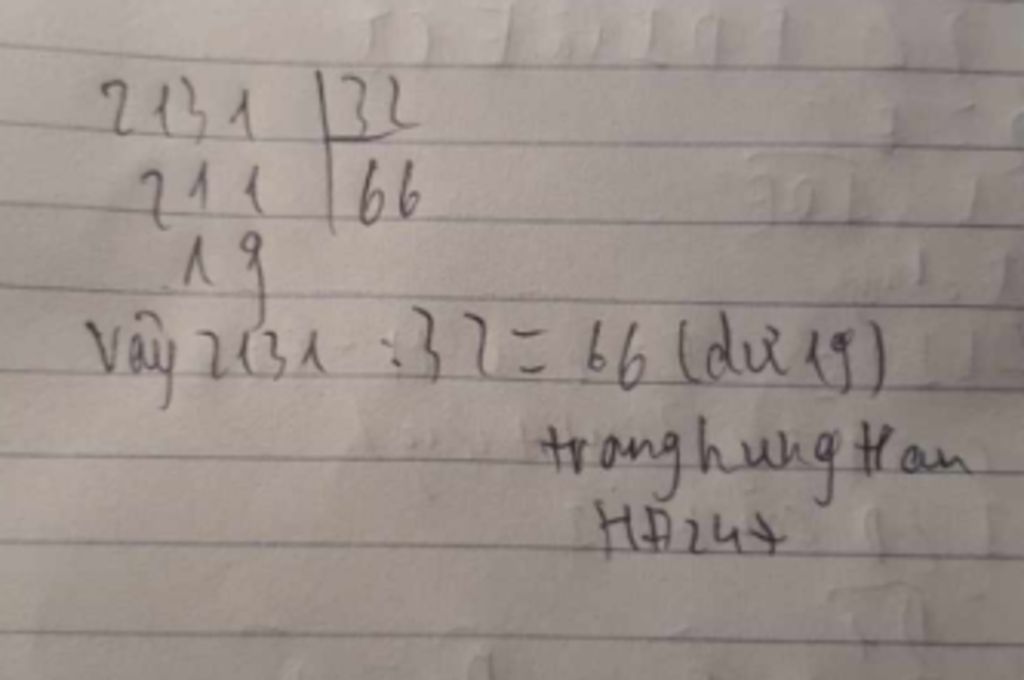 2131 | 32
211 | 66
19
Vậy 2131 : 32 = 66 (dư 19)
tranghungtran
HĐ247